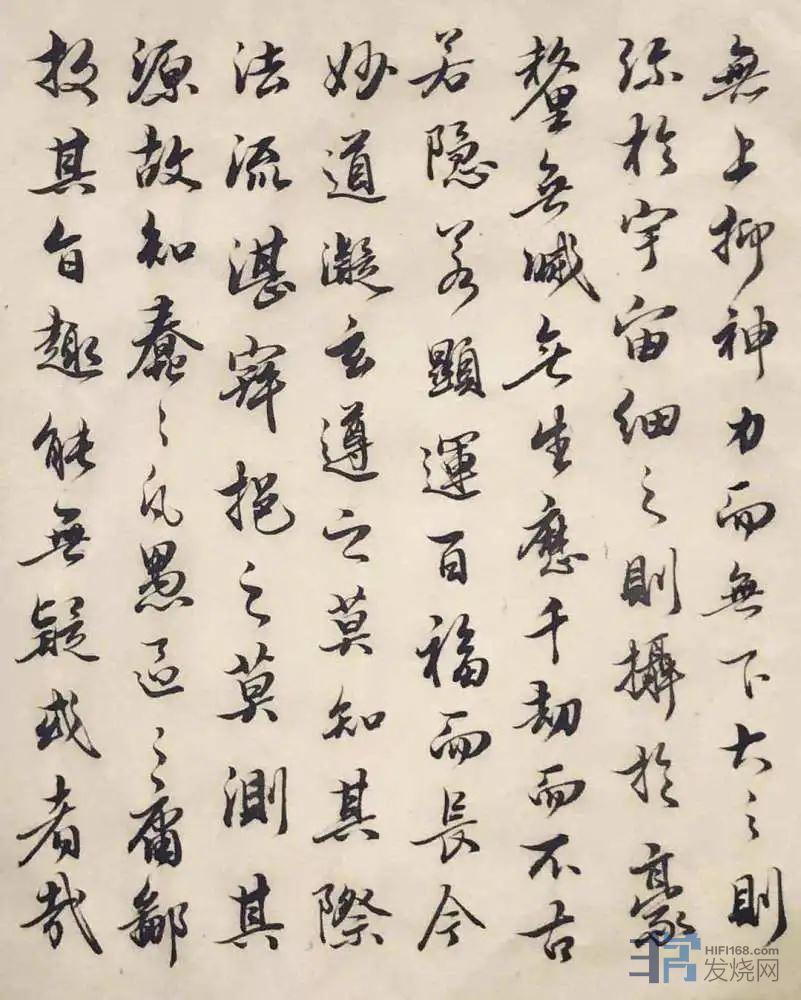 無上抑神力而無下大之則
弥於宇宙細之則攝於豪
釐無滅無生歷千劫而不古
若隐若顯運百福而長今
妙道凝玄遵之莫知其際
法流湛寂挹之莫測其
源故知蠢〻凡愚區〻庸鄙
投其旨趣能無疑或者哉
HIFI168.COM
发烧网